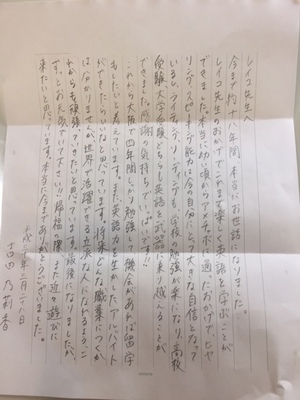 レイコ先生へ
今まで約十八年間、本当にお世話になりました。
レイコ先生のおかげでこれまで楽しく英語を学ぶことが
できました。本当に幼い頃からアメチャボに通ったおかげで、ヒヤ
リング、スピーキング能力は今の自分にとって大きな自信となって
いるし、ライティング、リーディングも、学校の勉強が楽になり、高校
受験、大学受験どちらも英語を武器に乗り越えることが
できました。感謝の気持ちでいっぱいです!!
これから大阪で四年間しっかり勉強して、機会があれば留学
もしたいと考えています。また、英語力を生かしたアルバイト
ができたらいいなと思っています。将来どんな職業につくか
は分かりませんが、世界で活躍できる立派な人になれるよう、こ
れからも頑張っていきたいと思っています。最後になりましたが、
ずっとお元気でいて下さい!!帰福の際、また近々遊びに
来たいと思っています。本当に今までありがとうございました。
平成二十七年三月二十八日
吉田 乃莉香